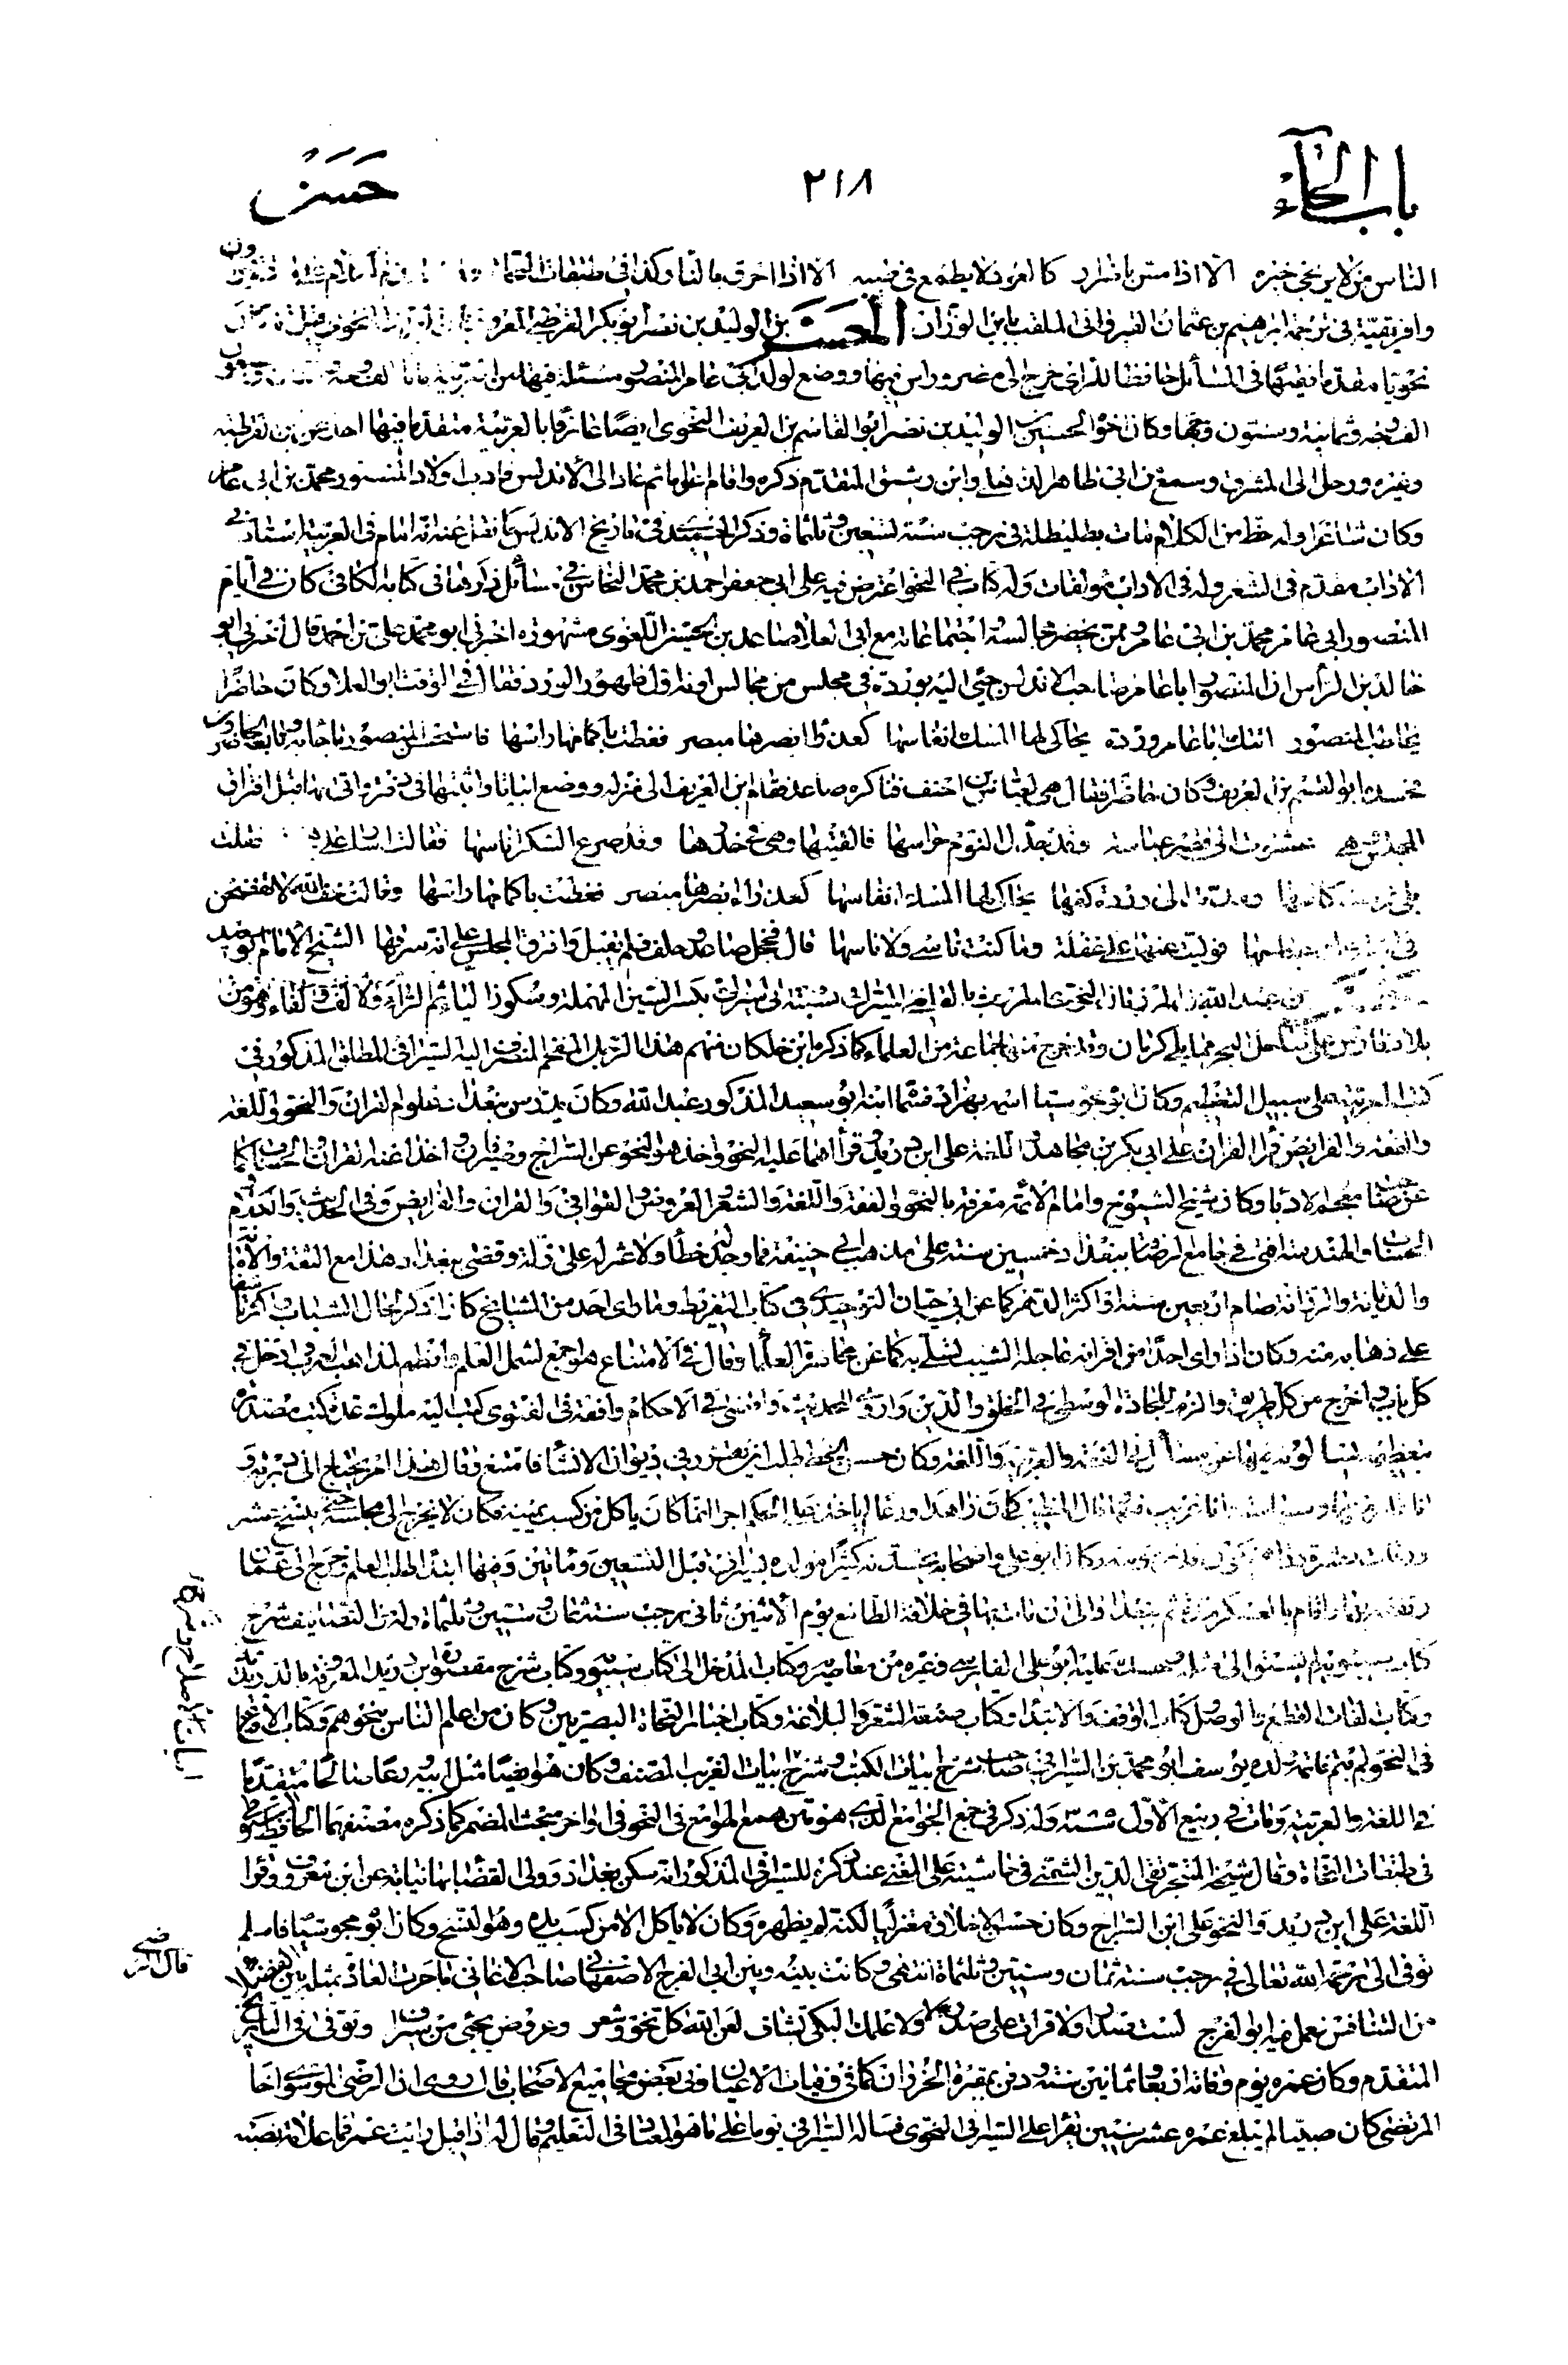 باب الحاء
٢١٨
حسن
الناس من لا يرجى خيره الا اذا مس باضرار كالعود لا يطمع فى طيبه الا اذا احرق بالنار وكذا فى طبقات النحاة
وافريقية فى ترجمة ابرهيم بن عثمان القيروانى الملقب بابن الوزان الحسن بن الوليد بن نصر ابو بكر القرطبى المعروف
نحويا مقدما فقيها فى المسائل حافظا للراى خرج الى مصر وراس فيها ووضع لولد ابى عامر المنصور مسئلة فيها من العربية
الف وجه وثمانية وستون وجها وكان اخو الحسين بن الوليد بن نصر ابو القاسم بن العريف النحوى ايضا عارفا بالعربية متقدما فيها اخذ عن ابن القوطية
وغيره ورحل الى المشرق وسمع من ابى طاهر الذهلى وابن رشيق المتقدم ذكره واقام اعواما ثم عاد الى الاندلس فادب اولاد المنصور محمد بن ابى عامر
وكان شاعرا وله حظ من الكلام مات بطليطلة فى رجب سنة تسعين وثلثمأة وذكر الحميدى فى تاريخ الاندلس ما نقل عنه انه امام فى العربية استاذ فى
الاداب مقدم فى الشعر وله فى الاداب مؤلفات وله كتاب فى النحو اعترض فيه على ابى جعفر احمد بن محمد النحاس فى مسائل ذكرها فى كتابه الكافى كان فى ايام
المنصور ابى عامر محمد بن ابى عامر وممن يحضر مجالسه اجتماعاته مع ابى العلا صاعد بن الحسن اللغوى مشهورة اخبرنى ابو محمد على بن احمد قال اخبرنى ابو
خالد بن الرأس ان المنصور ابا عامر صاحب الاندلس جئى اليه بوردة فى مجلس من مجالس انسه اول ظهور الورد فقال فى الوقت ابو العلا وكان حاضرا
يخاطب المنصور اتتك ابا عامر وردة يحاكى لها المسك انفاسها كعذراء ابصرها مبصر فغطت باكمامها راسها فاستحسن المنصور ما جاء به وتابعه الحاضرون
فحسده ابو القسم بن العريف وكان حاضرا فقال هى لعباس بن احنف فناكره صاعد فقام ابن العريف الى منزله ووضع ابياتا واثبتها فى دفتر واتى بها قبل افتراق
المجلس هى عشوت الى قصر عباسة وقد جدل النوم حراسها فالفيتها وهى فى خدرها وقد صرع السكر ناسها فقالت اسار على فقلت
بلى فرمت كاسها ومدت الى وردة كفها يحاكى لها المسك انفاسها كعذراء ابصرها مبصر فغطت باكمامها راسها وقالت خف الله لا تفضحن
فى ابنة عمك عباسها فوليت عنها على غفلة وما كنت ناسى ولا ناسها قال فخجل صاعد وحلف فلم يقبل وافترق المجلس على انه سرقها الشيخ الامام ابو سعيد
الحسن بن عبد الله بن المرزبان النحوى السيرافى نسبته الى سيراف بكسر السين المهملة وسكون الياء ثم الراء والالف والفاء وهو من
بلاد فارس على ساحل البحر مما يلى كرمان وقد خرج منها جماعة من العلماء كما ذكره ابن خلكان فمنهم هذا الرجل المفخم المنصرف اليه السيرافى المطلق المذكور فى
كتب العربية على سبيل التعظيم وكان ابوه مجوسيا اسمه بهزاد فسماه ابنه ابو سعيد المذكور عبد الله وكان يدرس ببغداد علوم القران والنحو واللغة
والفقه والفرائض قرأ القران على ابى بكر بن مجاهد واللغة على ابن دريد وقرأ هما عليه النحو واخذ هو النحو عن السراج ومبرمان واخذا عنه القران والحساب كما
عن صاحب معجم الادبا وكان شيخ الشيوخ وامام الأئمة معرفة بالنحو والفقه واللغة والشعر والعروض والقوافى والقران والفرائض والحديث والكلام
والحساب والهندسة افتى فى جامع الرصافة ببغداد خمسين سنة على مذهب ابى حنيفة فما وجد له خطأ ولا عثر له على زلة وقضى ببغداد هذا مع الثقة والامانة
والديانة والرزانة صام اربعين سنة او اكثر الدهر كما عن ابى حيان التوحيدى فى كتاب التقريظ وما راى احد من المشايخ كان اذكر لحال الشباب واكثر تاسفا
على ذهابه منه وكان اذا راى احدا من اقرانه عاجله الشيب تسلى به كما عن محاضرة العلما وقال فى الامتاع هو اجمع لشمل العلم وانظم لمذاهب العرب وادخل فى
كل باب واخرج من كل طريق والزم للجادة الوسطى فى الخلق والدين واروى للحديث واقضى فى الاحكام وافقه فى الفتوى كتب اليه ملوك عدة كتب مصدرة
بتعظيمه تسأله فيها عن مسائل فى الفقه والعربية واللغة وكان حسن الخط طلب ان يقرر فى ديوان الانشا فامتنع وقال هذا امر يحتاج الى دربة و
انا عار منها وسياسة وانا غريب فيها قال الخطيب كان زاهدا ورعا لم ياخذ على الحكم اجرا انما كان ياكل من كسب يمينه فكان لا يخرج الى مجلسه حتى ينسخ عشر
ورقات بعشرة دراهم وكان ابو على واصحابه يحسدونه كثيرا مولده بسيراف قبل التسعين ومأتين وفيها ابتدأ لطلب العلم وخرج الى عمان
وتفقه بها واقام بالعسكر مدة ثم ببغداد الى ان مات بها فى خلافة الطائع يوم الاثنين ثانى رجب سنة ثمان وستين وثلثمأة وله من التصانيف شرح
كتاب سيبويه لم يسبق الى مثله وحسده عليه ابو على الفارسى وغيره من معاصريه وكتاب المدخل الى كتاب سيبويه وكتاب شرح مقصورة ابن دريد المعروفة بالدريدية
وكتاب الفات القطع والوصل كتاب الوقف والابتدا وكتاب صنعة الشعر والبلاغة وكتاب اخبار النحاة البصريين وكان من اعلم الناس بنحوهم وكتاب الاقناع
فى النحو لم يتم فاتمه ولده يوسف ابو محمد بن السيرافى صاحب شرح ابيات الكتاب وشرح ابيات الغريب المصنف وكان هو ايضا مثل ابيه دينا صالحا متقدما
فى اللغة والعربية ومات فى ربيع الاول سنة وله ذكر فى جمع الجوامع الذى هو متن همع الهوامع فى النحو فى اواخر مبحث المضمر كما ذكره مصنفهما الحافظ السيوطى
فى طبقات النحاة وقال شيخه المتبحر تقى الدين الشمنى فى حاشيته على المغنى عند ذكره للسيرافى المذكور انه سكن بغداد وولى القضاء بها نيابة عن ابن معروف وقرا
اللغة على ابن دريد والنحو على ابن السراج وكان حسن الاخلاق معتزليا لكنه لم يظهره وكان لا ياكل الا من كسب يده وهو النسخ وكان ابوه مجوسيا فاسلم
توفى الى رحمة الله تعالى فى رجب سنة ثمان وستين وثلثمأة انتهى وكانت بينه وبين ابى الفرج الاصفهانى صاحب الاغانى ما جرت العادة بمثله بين الفضلاء
من التنافس فعمل فيه ابو الفرج لست صدرا ولا قرات على صدر ولا علمك البكى بشاف لعن الله كل نحو وشعر وعروض يجئى من سيراف وتوفى فى التاريخ
المتقدم وكان عمره يوم وفاته اربعا وثمانين سنة ودفن بمقبرة الخيزران كما فى وفيات الاعيان وفى بعض مجاميع الاصحاب قال روى ان الرضى الموسوى اخا
المرتضى كان صبيا لم تبلغ عمره عشر سنين يقرا على السيرافى النحوى فساله السيرافى يوما على ما هو العادة فى التعليم وقال له اذا قيل رايت عمر فما علامة نصبه
قال الرضى